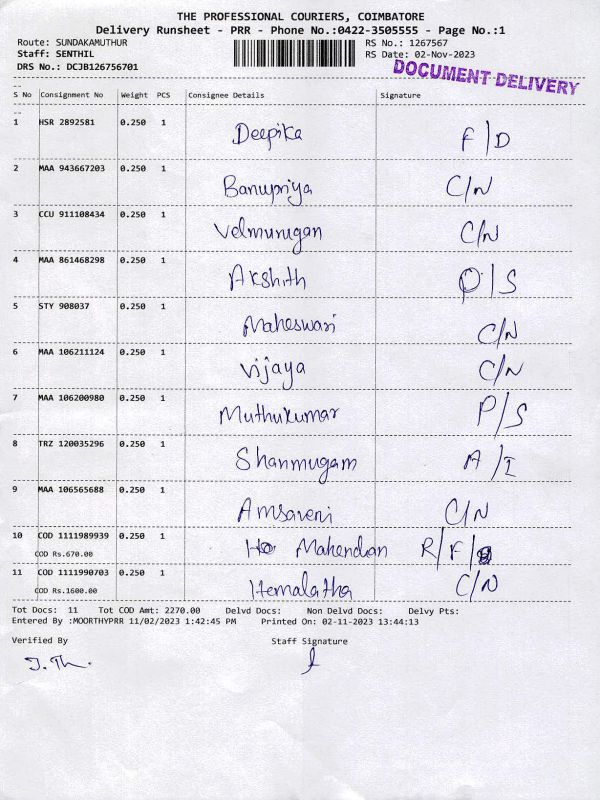 THE PROFESSIONAL COURIERS, COIMBATORE
Delivery Runsheet - PRR - Phone No.:0422-3505555 - Page No.:1
Route: SUNDAKAMUTHUR RS No.: 1267567
Staff: SENTHIL RS Date: 02-Nov-2023
DRS No.: DCJB126756701
DOCUMENT DELIVERY
S No Consignment No Weight PCS Consignee Details Signature
1 HSR 2892581 0.250 1 Deepika F/D
2 MAA 943667203 0.250 1 Banupriya C/N
3 CCU 911108434 0.250 1 Velmurugan C/N
4 MAA 861468298 0.250 1 Akshith O/S
5 STY 908037 0.250 1 Maheswari C/N
6 MAA 106211124 0.250 1 Vijaya C/N
7 MAA 106200980 0.250 1 Muthukumar P/S
8 TRZ 120035296 0.250 1 Shanmugam A/I
9 MAA 106565688 0.250 1 Amsaveni C/N
10 COD 1111989939 0.250 1 Mahendran R/F/
COD Rs.670.00
11 COD 1111990703 0.250 1 Hemalatha C/N
COD Rs.1600.00
Tot Docs: 11 Tot COD Amt: 2270.00 Delvd Docs: Non Delvd Docs: Delvy Pts:
Entered By :MOORTHYPRR 11/02/2023 1:42:45 PM Printed On: 02-11-2023 13:44:13
Verified By Staff Signature